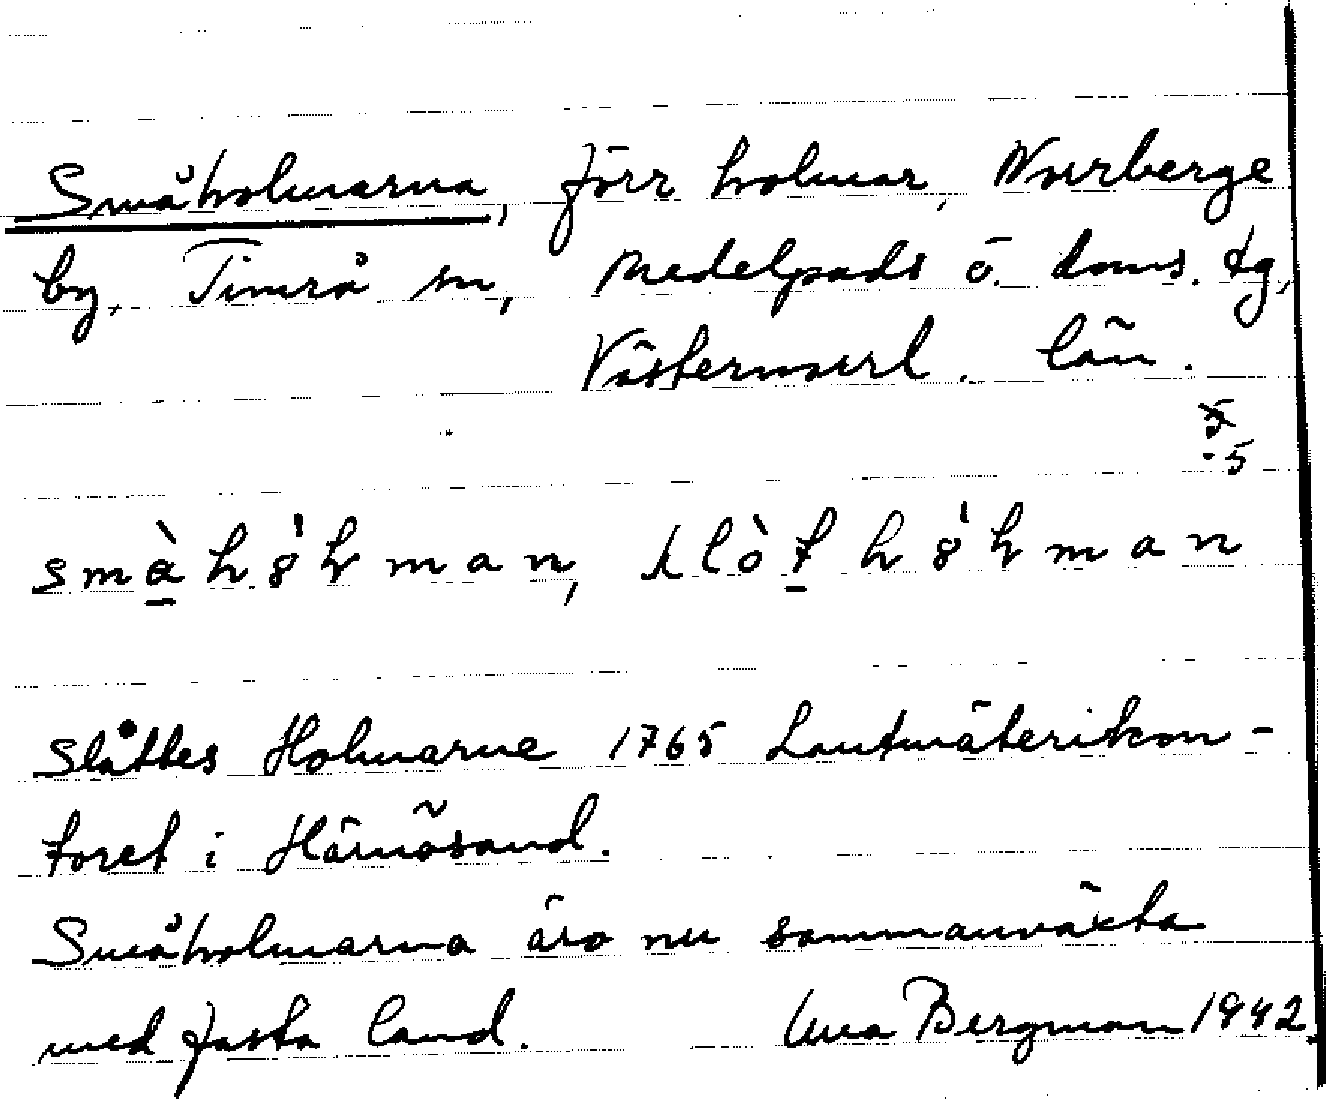 Småholmarna, förr holmar, Norrberge
by, Timrå sn, Medelpads ö. doms. tg,
Västernorrl. län.
5
smàhọ̀hman, slòthọ̀hman
Slåttes Holmarne 1765 Lantmäterikon-
toret i Härnösand.
Småholmarna äro nu sammanväxta
med fasta land. Una Bergman 1942.